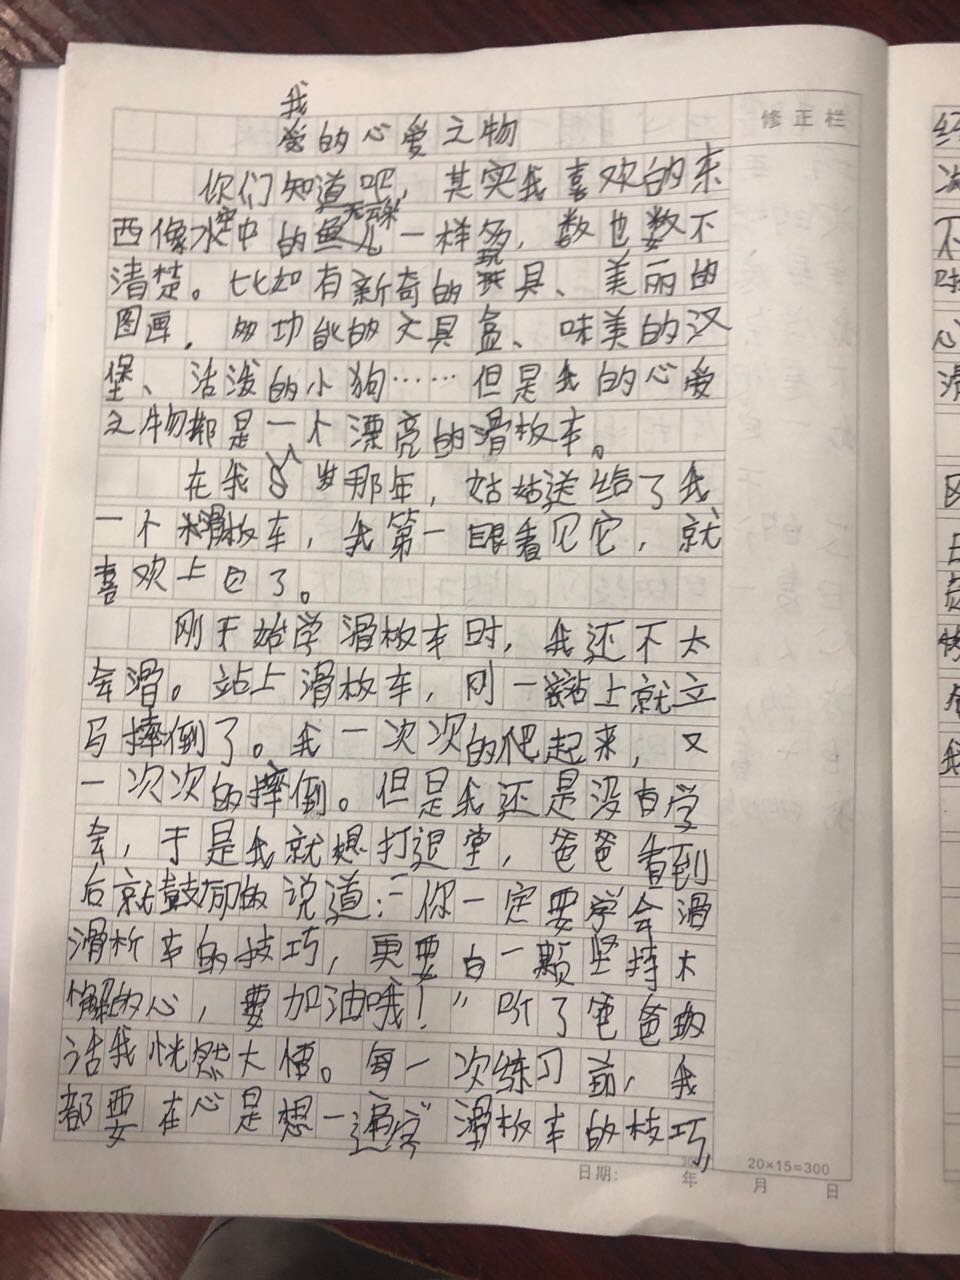 我
的心爱之物
修正栏
你们知道吧，其实我喜欢的东
西像空中的无云彩一样多，数也数不
清楚。比如有新奇的玩具、美丽的
图画，多功能的文具盒、味美的汉
堡、活泼的小狗……但是我的心爱
之物却是一个漂亮的滑板车。
在我8岁那年，姑姑送给了我
一个滑板车，我第一眼看见它，就
喜欢上它了。
刚开始学滑板车时，我还不太
会滑。站上滑板车，刚一站上就立
马摔倒了。我一次次的爬起来，又
一次次的摔倒。但是我还是没有学
会，于是我就想打退堂，爸爸看到
后就鼓励的说道：“你一定要学会滑
滑板车的技巧，更要有一颗坚持不
懈的心，要加油哦！”听了爸爸的
话我恍然大悟。每一次练习前，我
都要在心是想一遍学滑板车的技巧，
20×15=300
日期： 年 月 日